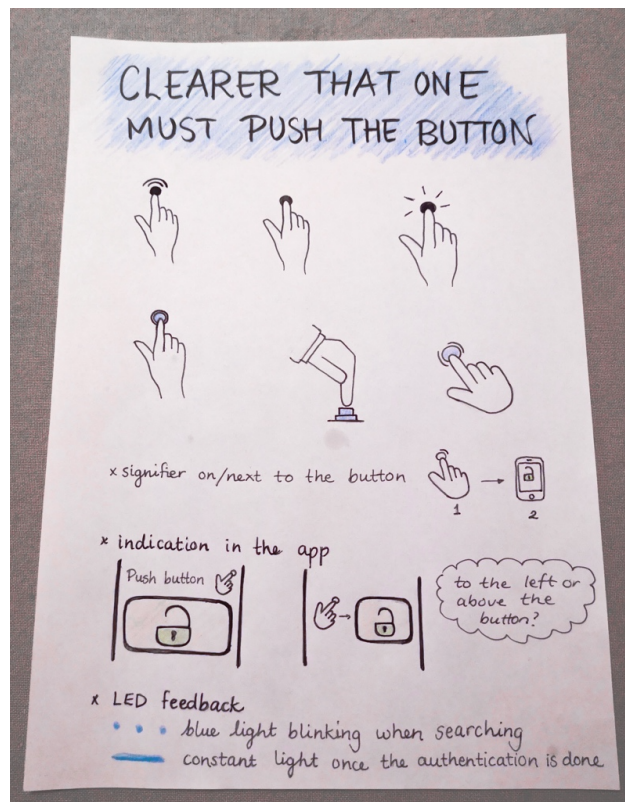 CLEARER THAT ONE
MUST PUSH THE BUTTON
x signifier on/next to the button
1
2
x indication in the app
Push button
to the left or
above the
button?
x LED feedback
blue light blinking when searching
constant light once the authentication is done